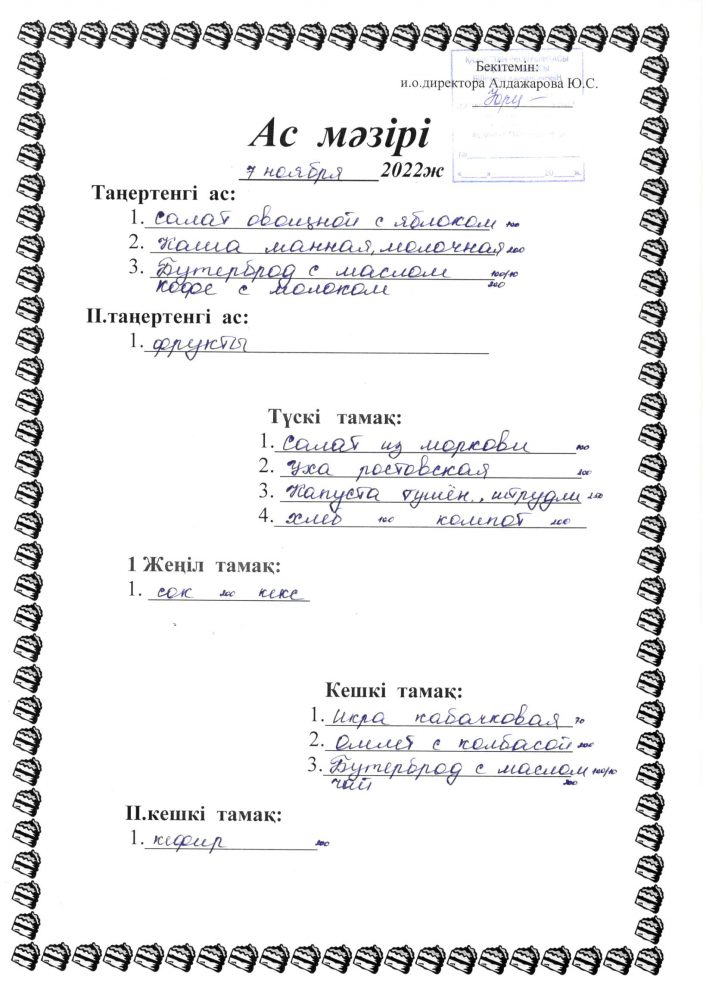 Бекітемін:
и.о.директора Алдажарова Ю.С.
Ас мәзірі
7 ноября 2022ж
Таңертенгі ас:
1. Салат овощной с яблоком 100
2. Каша манная, молочная 200
3. Бутерброд с маслом 100/10
кофе с молоком 200
II.таңертенгі ас:
1. фрукты
Түскі тамақ:
1. Салат из моркови 100
2. Уха ростовская 200
3. Капуста тушён., штрудли 250
4. хлеб 100 компот 200
1 Жеңіл тамақ:
1. сок 200 кекс
Кешкі тамақ:
1. Икра кабачковая 70
2. Омлет с колбасой 200
3. Бутерброд с маслом 100/10
чай 200
II.кешкі тамақ:
1. кефир 200